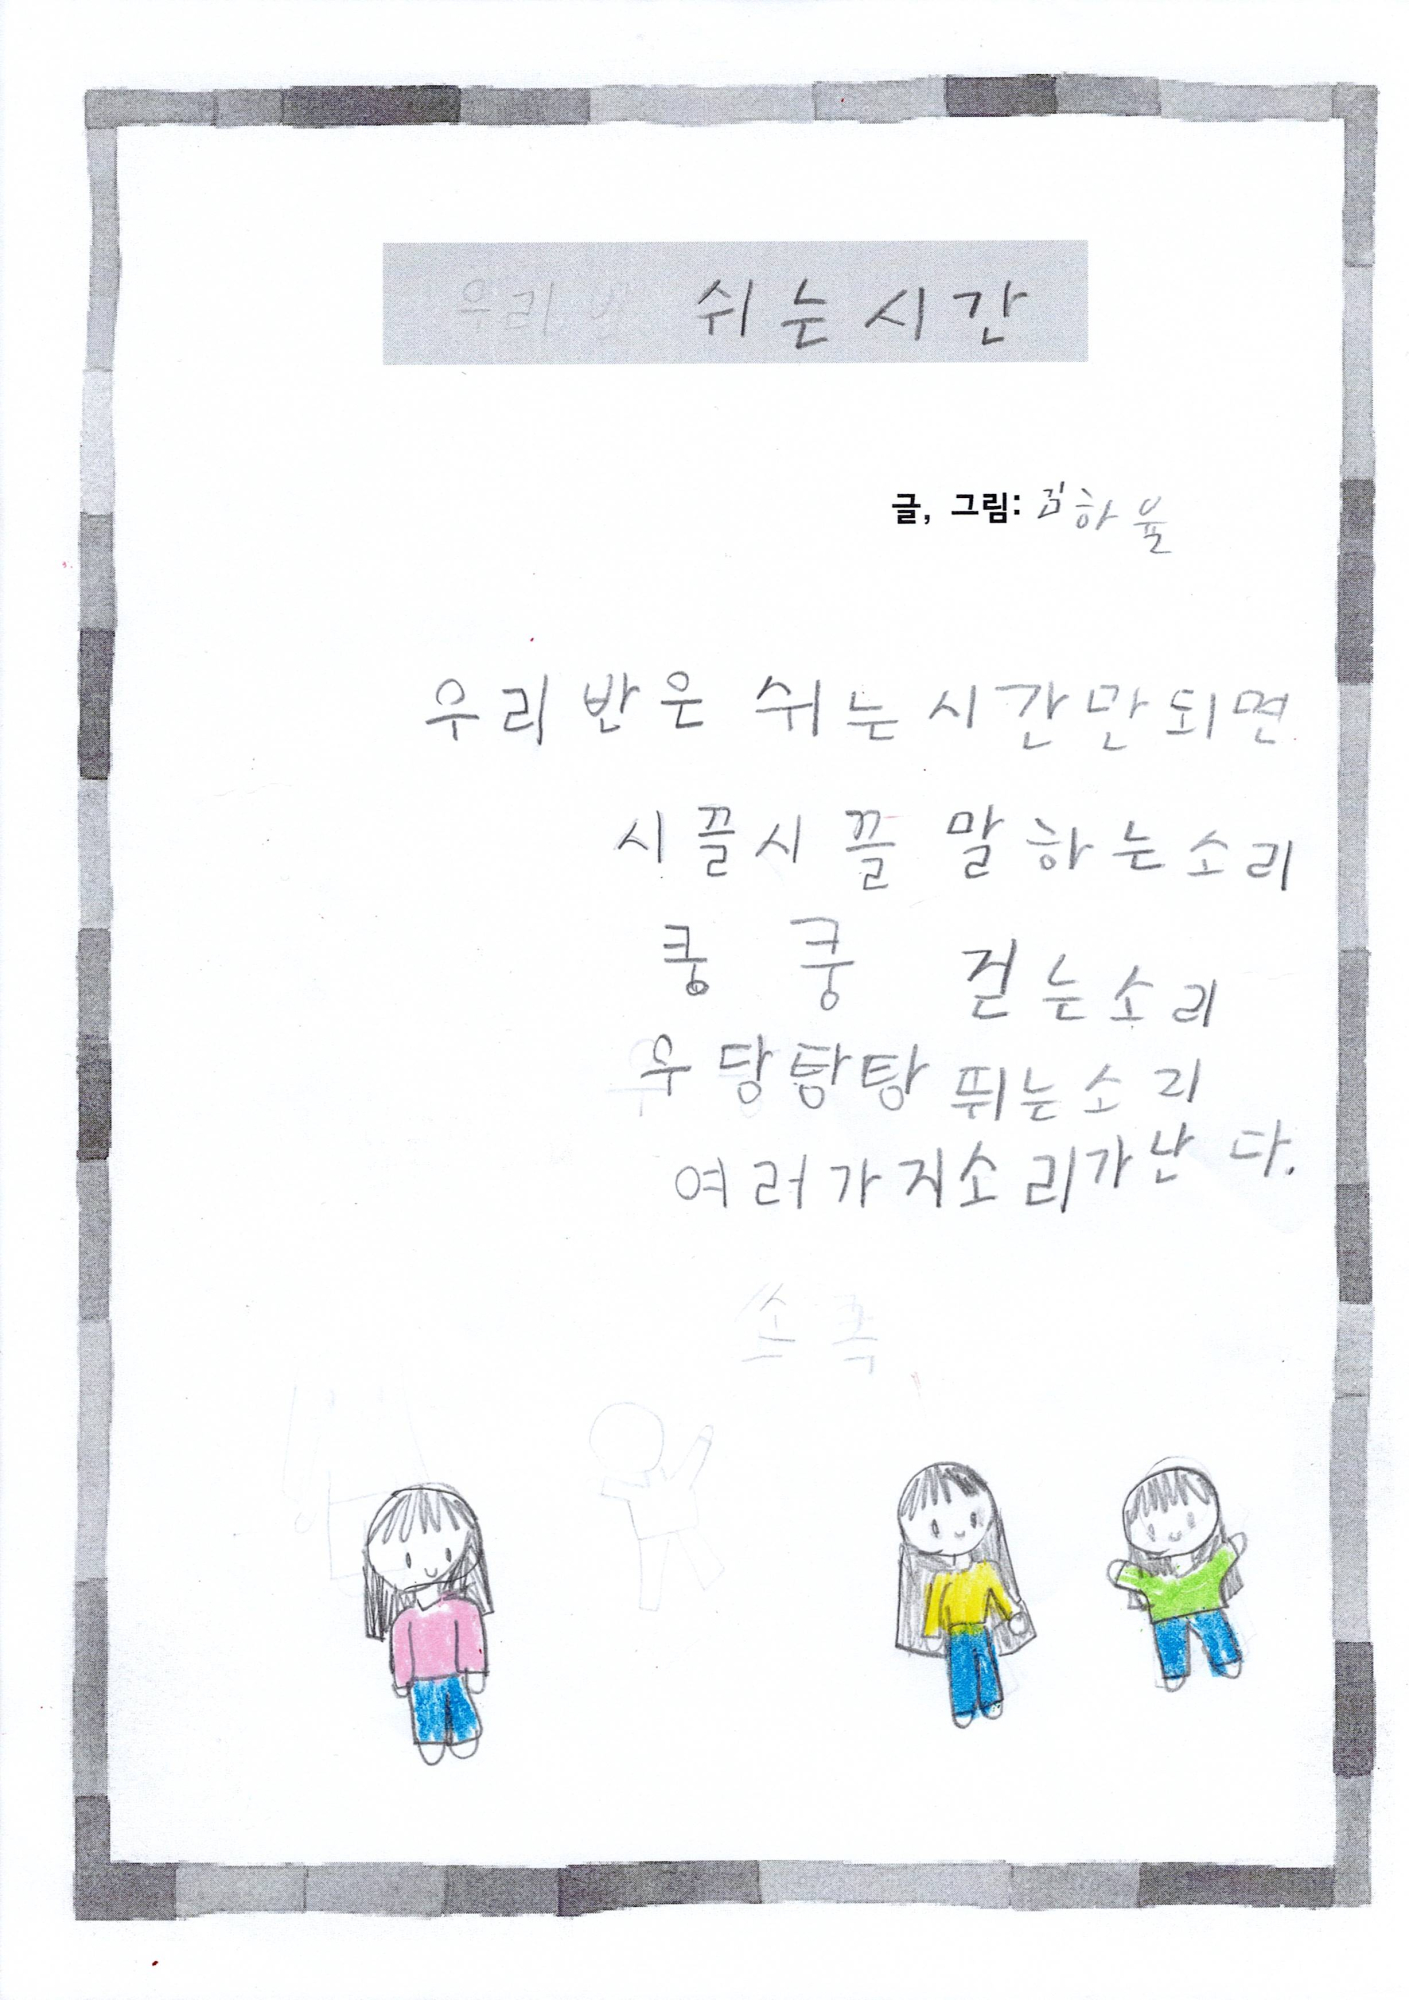 쉬는시간
글, 그림: 김하율
우리반은 쉬는시간만되면
시끌시끌 말하는소리
쿵 쿵 걷는소리
우당탕탕 뛰는소리
여러가지소리가난다.